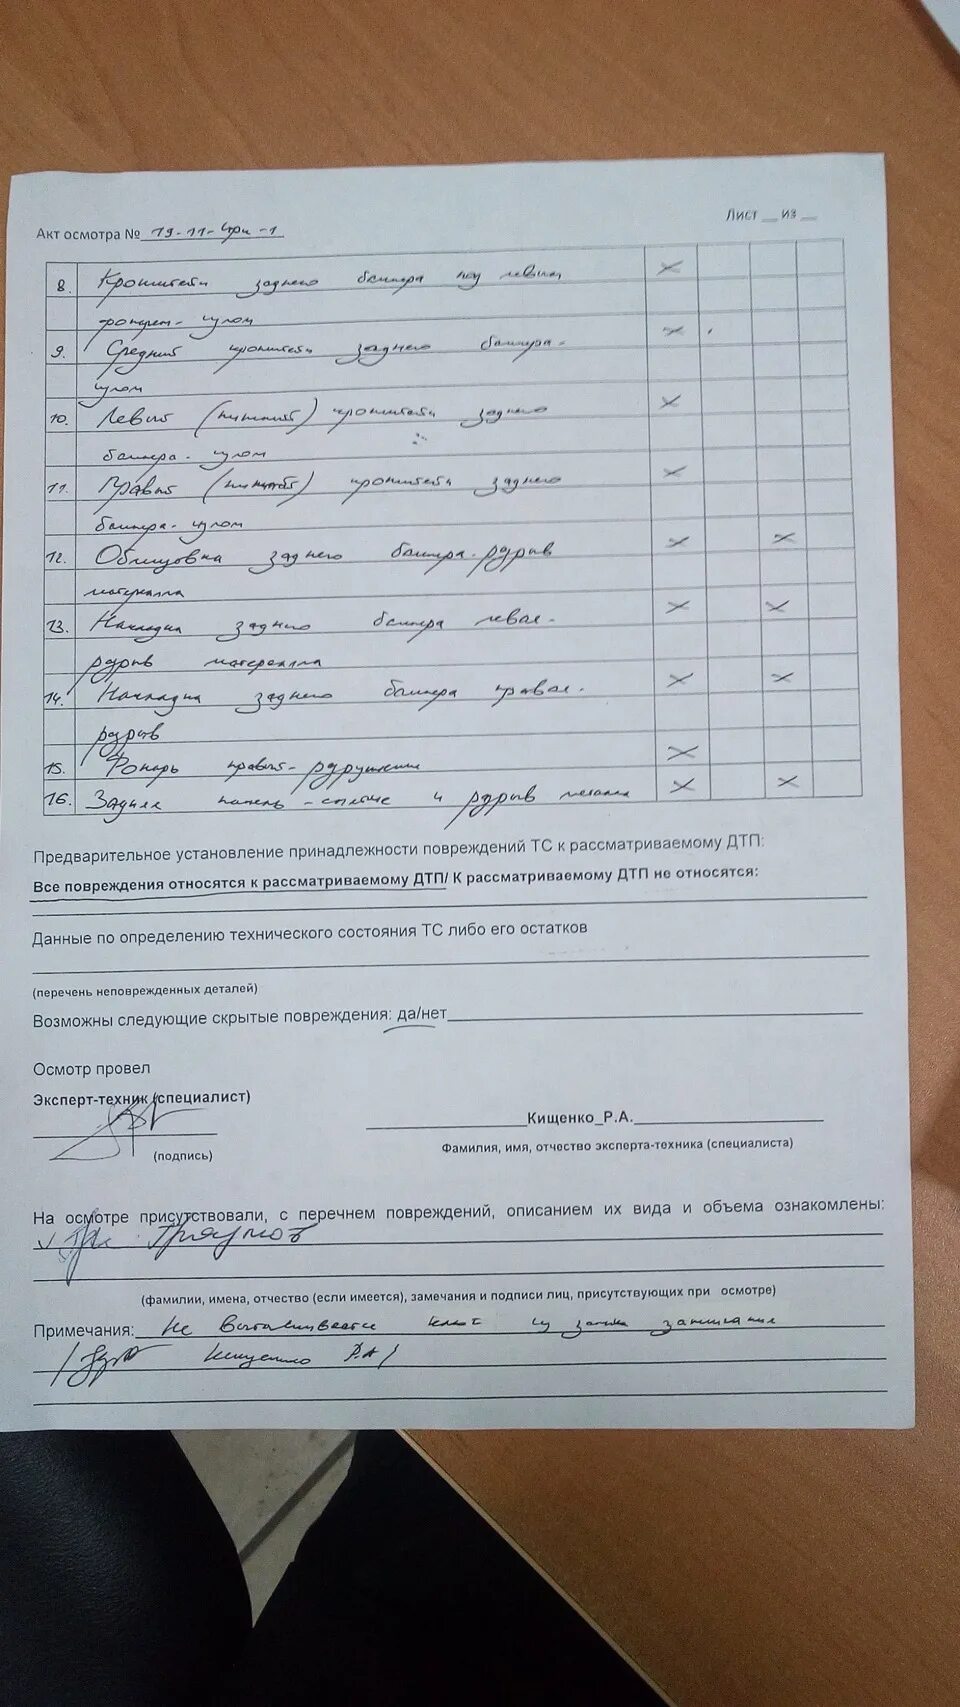 Лист __ из __
Акт осмотра № 19-11-
8. Кронштейн заднего бампера под левым
фонарем - излом
9. Средний кронштейн заднего бампера -
излом
10. Левый (нижний) кронштейн заднего
бампера - излом
11. Правый (нижний) кронштейн заднего
бампера - излом
12. Облицовка заднего бампера - разрыв
материала
13. Накладка заднего бампера левая -
разрыв материалла
14. Накладка заднего бампера правая -
разрыв
15. Фонарь правый - разрушение
16. Задняя панель - и разрыв металла
Предварительное установление принадлежности повреждений ТС к рассматриваемому ДТП:
Все повреждения относятся к рассматриваемому ДТП/ К рассматриваемому ДТП не относятся:
Данные по определению технического состояния ТС либо его остатков
(перечень неповрежденных деталей)
Возможны следующие скрытые повреждения: да/нет
Осмотр провел
Эксперт-техник (специалист)
Кищенко_Р.А.
(подпись)
Фамилия, имя, отчество эксперта-техника (специалиста)
На осмотре присутствовали, с перечнем повреждений, описанием их вида и объема ознакомлены:
(фамилии, имена, отчество (если имеется), замечания и подписи лиц, присутствующих при осмотре)
Примечания: Не вытаскивается ключ из замка зажигания
Кищенко Р.А/